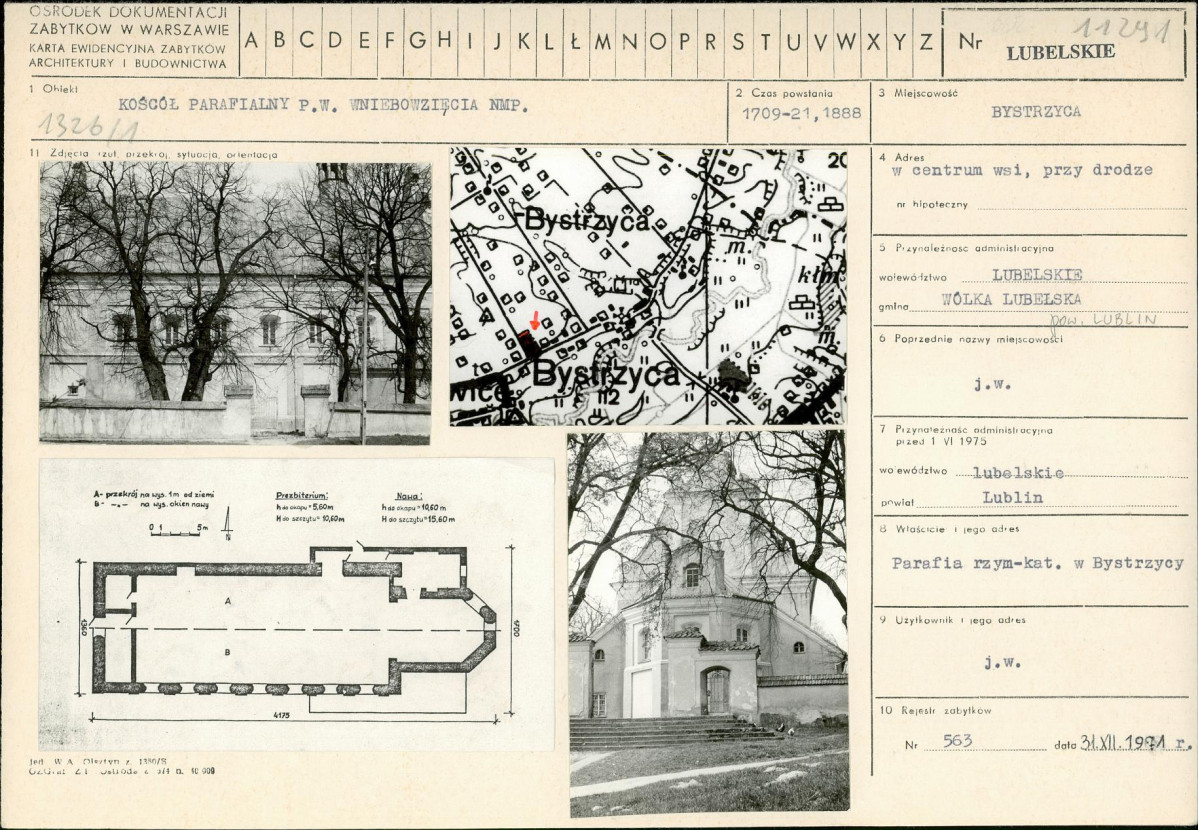 OŚRODEK DOKUMENTACJI
ZABYTKÓW W WARSZAWIE
KARTA EWIDENCYJNA ZABYTKÓW
ARCHITEKTURY I BUDOWNICTWA
A B C D E F G H I J K L Ł M N O P R S T U V W X Y Z
Nr
11291
LUBELSKIE
1 Obiekt
KOŚCÓŁ PARAFIALNY P.W. WNIEBOWZIĘCIA NMP.
1326/1
2 Czas powstania
1709-21,1888
3 Miejscowość
BYSTRZYCA
11 Zdjęcia rzut, przekrój, sytuacja, orientacja
20
Bystrzyca
m.
kłm
Bystrzyca
112
m.
4 Adres
w centrum wsi, przy drodze
nr hipoteczny
5 Przynależność administracyjna
województwo LUBELSKIE
gmina WÓLKA LUBELSKA
pow. LUBLIN
6 Poprzednie nazwy miejscowości
j.w.
7 Przynależność administracyjna
przed 1 VI 1975
województwo lubelskie
powiat Lublin
8 Właściciel i jego adres
Parafia rzym-kat. w Bystrzycy
9 Użytkownik i jego adres
j.w.
10 Rejestr zabytków
Nr 563 data 31.XII.1971 r.
A- przekrój na wys. 1m od ziemi
B- -„- na wys. okien nawy
0 1 5m
N
Prezbiterium:
h do okapu= 5,60m
H do szczytu= 10,60m
Nawa:
h do okapu= 10,60m
H do szczytu= 15,60m
A
B
1360
1700
4175